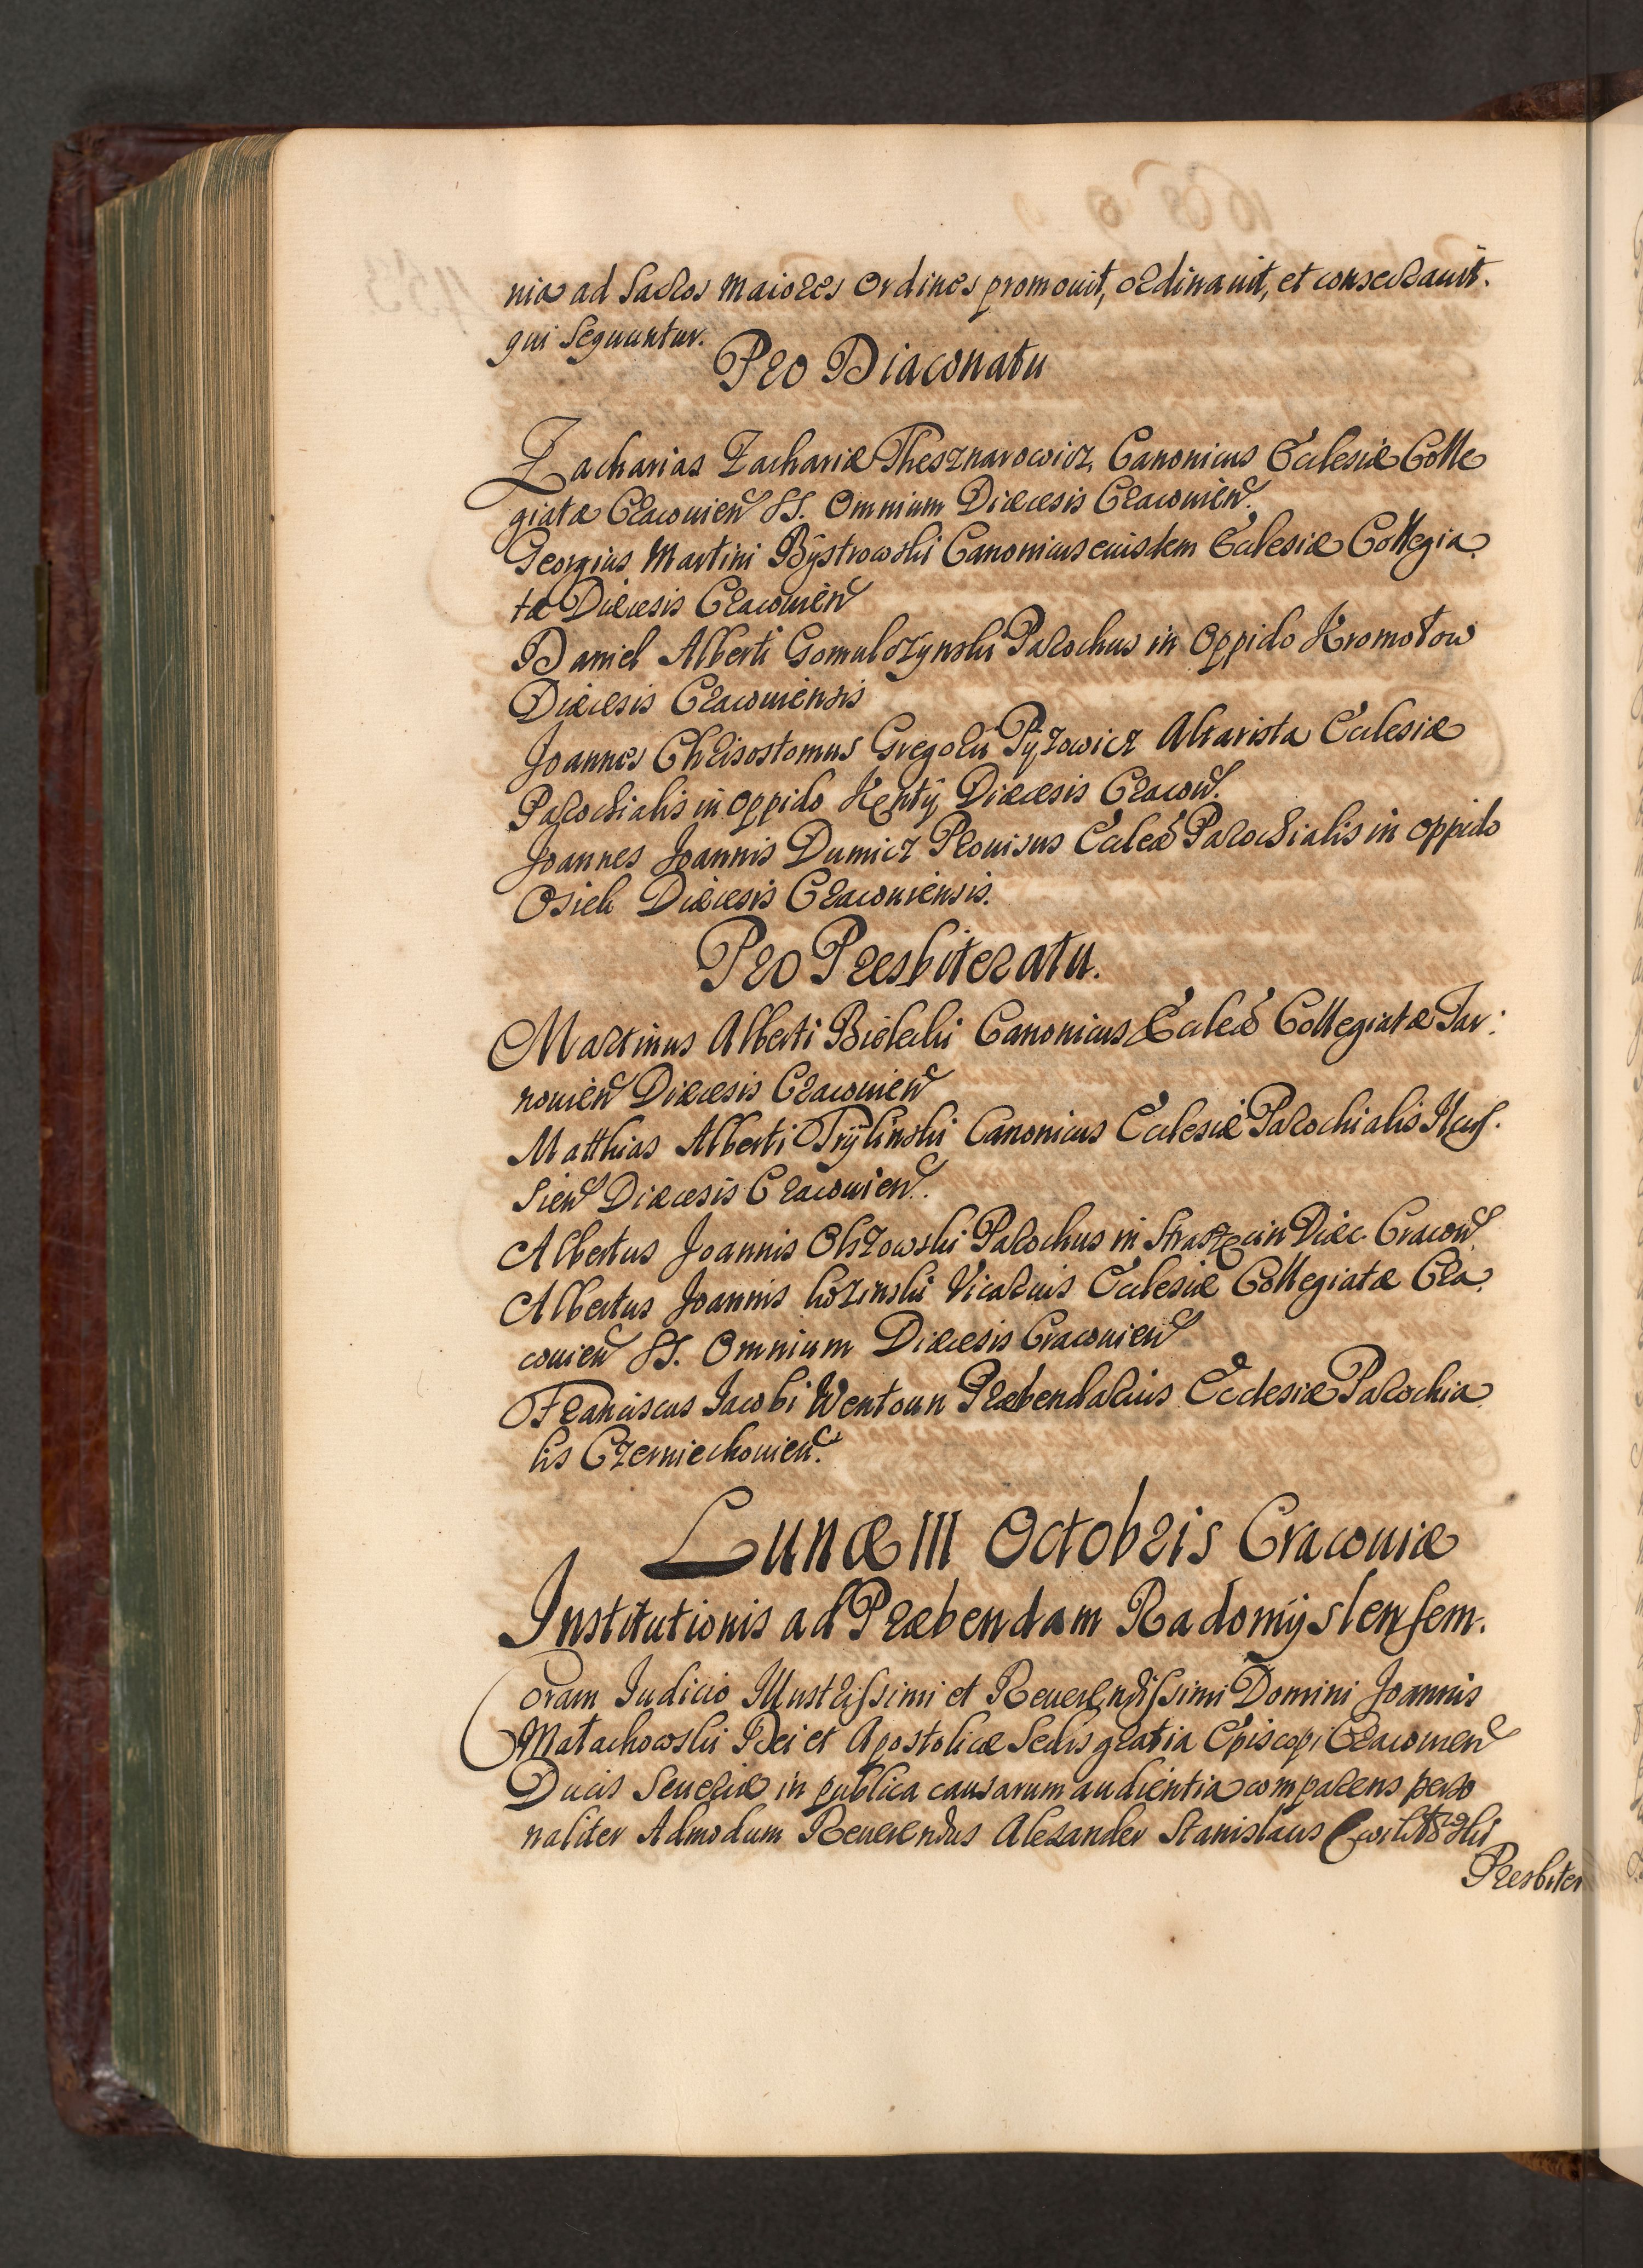 nia ad Sacros maiores Ordines promouit, ordinauit, et consecrauit.
qui sequuntur.
Pro Diaconatu
Zacharias Zachariæ Thesznarowicz, Canonicus Ecclesiæ Colle
giatæ Cracouien SS. Omnium Diæcesis Cracouien.
Georgius Martini Bÿstrowski Canonicus eiusdem Ecclesiæ Collegia
tæ Diæcesis Cracouien
Daniel Alberti Gomulczynski Parochus in Oppido Kromołow
Diæcesis Cracouiensis
Joannes Chrisostomus Gregorii Pÿzowicz Altarista Ecclesiæ
Parochialis in oppido Kentÿ Diæcesis Cracou.
Joannes Joannis Dumicz Prouisus Eccleæ Parochialis in oppido
Osiek Diæcesis Cracouiensis.
Pro Presbiteratu.
Martinus Alberti Bielecki Canonicus Eccleæ Collegiatæ Tar:
nouien Diæcesis Cracouien
Matthias Alberti Trÿlinski Canonicus Ecclesiæ Parochialis
sien Diæcesis Cracouien.
Albertus Joannis Olszowski Parochus in Straszęcin Diæc. Cracou
Albertus Joannis Vicarius Ecclesiæ Collegiatæ Cra
couien SS. Omnium Diæcesis Cracouien
Franciscus Jacobi Wentoun Præbendarius Ecclesiæ Parochia
lis Czerniechouien.
Lunæ III Octobris Cracouiæ
Institutionis ad Præbendam Radomÿslensem.
Coram Iudicio Illustrissimi et Reuerendissimi Domini Joannis
Małachowski Dei et Apostolicæ Sedis gratia Episcopi Cracouien
Ducis Seueriæ in publica causarum audientia comparens perso
naliter Admodum Reuerendus Alexander Stanislaus
Presbiter